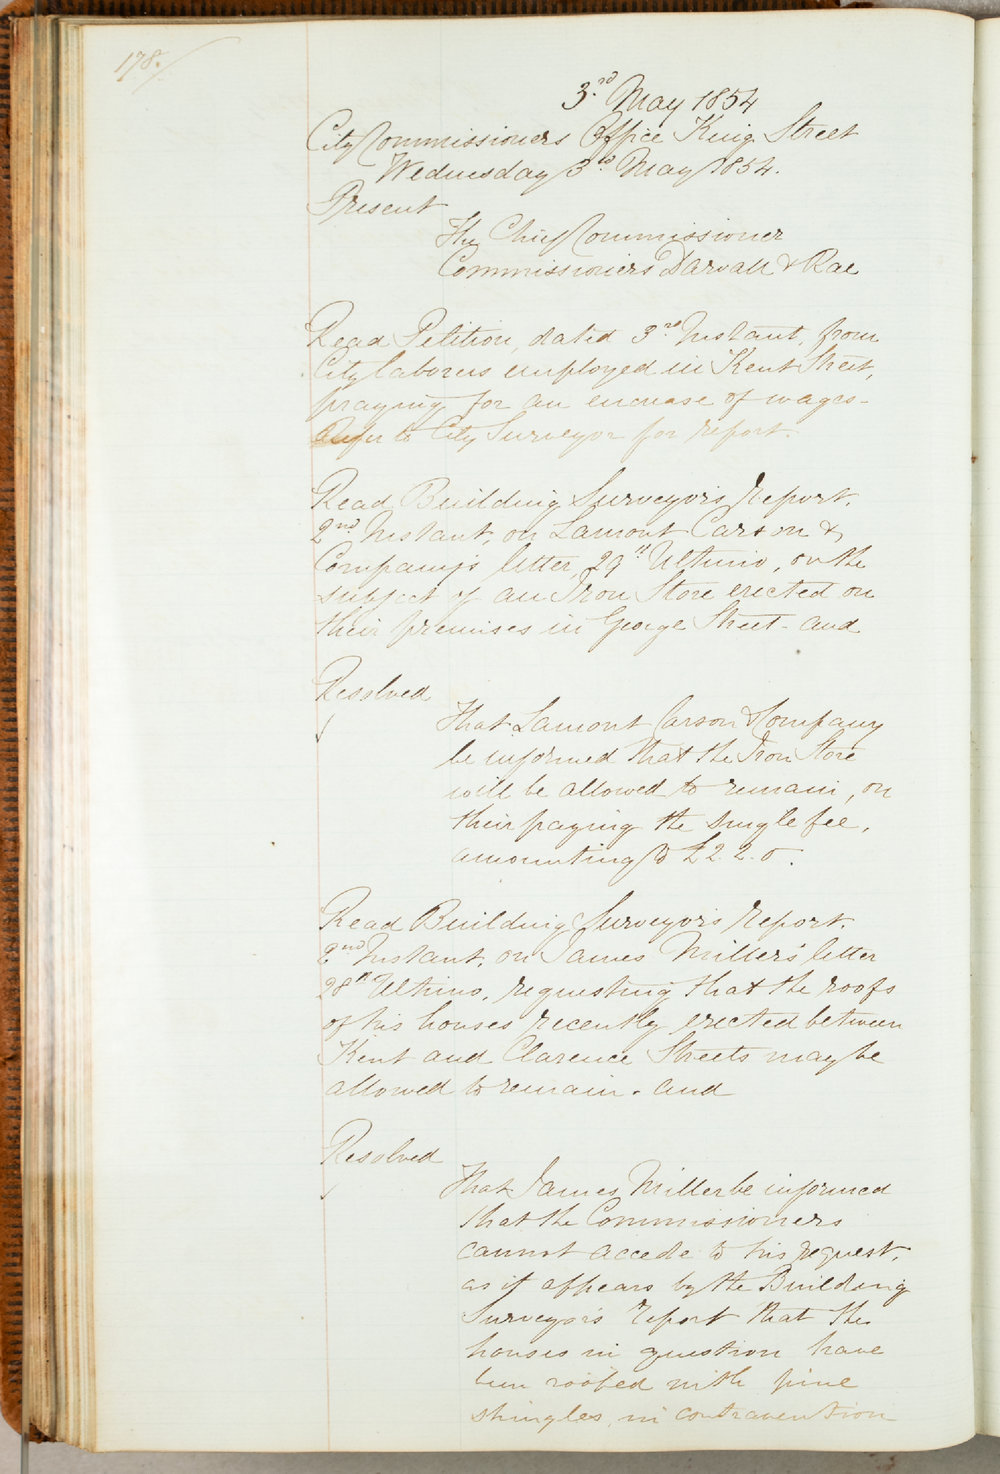 178.
3.rd May 1854
City Commissioners Office King Street
Wednesday 3rd May 1854.
Present
The Chief Commissioner
Commissioners Darvall & Rae
Read Petition, dated 3rd Instant, from
City laborers employed in Kent Street,
praying for an encrease of wages-
Refer to City Surveyor for report.
Read Building Surveyor's report.
2nd Instant, on Lamont Carson &
Company's letter 29th Ultimo, on the
subject of an Iron Store erected on
their premises in George Street - and
Resolved
That Lamont Carson & Company
be informed that the Iron Store
will be allowed to remain, on
their paying the single fee,
amounting to £2.2.0.
Read Building Surveyor's report.
2nd Instant, on James Millers' letter
28th Ultimo, requesting that the roofs
of his houses recently erected between
Kent and Clarence Streets may be
allowed to remain. and
Resolved
That James Miller be informed
that the Commissioners
cannot accede to his request,
as it appears by the Building
Surveyor's report that the
houses in question have
been roofed with pine
shingles, in contravention